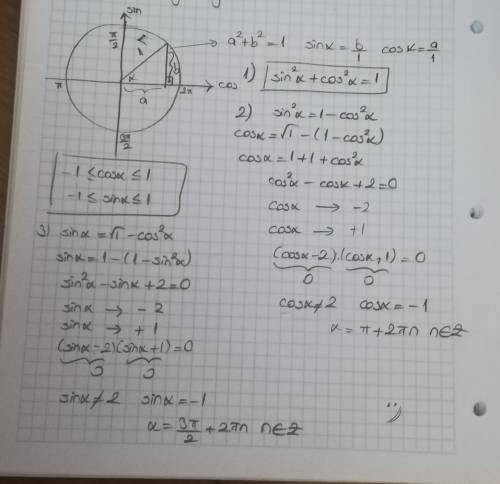 sin
π/2
1
b
α
a
cos
π
2π
3π/2
a²+b²=1 sinα=b/1 cosα=a/1
1) sin²α+cos²α=1
2) sin²α=1-cos²α
cosα=√1-(1-cos²α)
cosα=1+1+cos²α
cos²α-cosα+2=0
cosα → -2
cosα → +1
(cosα-2).(cosα+1)=0
0 0
cosα≠2 cosα=-1
α=π+2πn n∈Z
-1≤cosα≤1
-1≤sinα≤1
3) sinα=√1-cos²α
sinα=1-(1-sin²α)
sin²α-sinα+2=0
sinα → -2
sinα → +1
(sinα-2)(sinα+1)=0
0 0
sinα≠2 sinα=-1
α=3π/2+2πn n∈Z